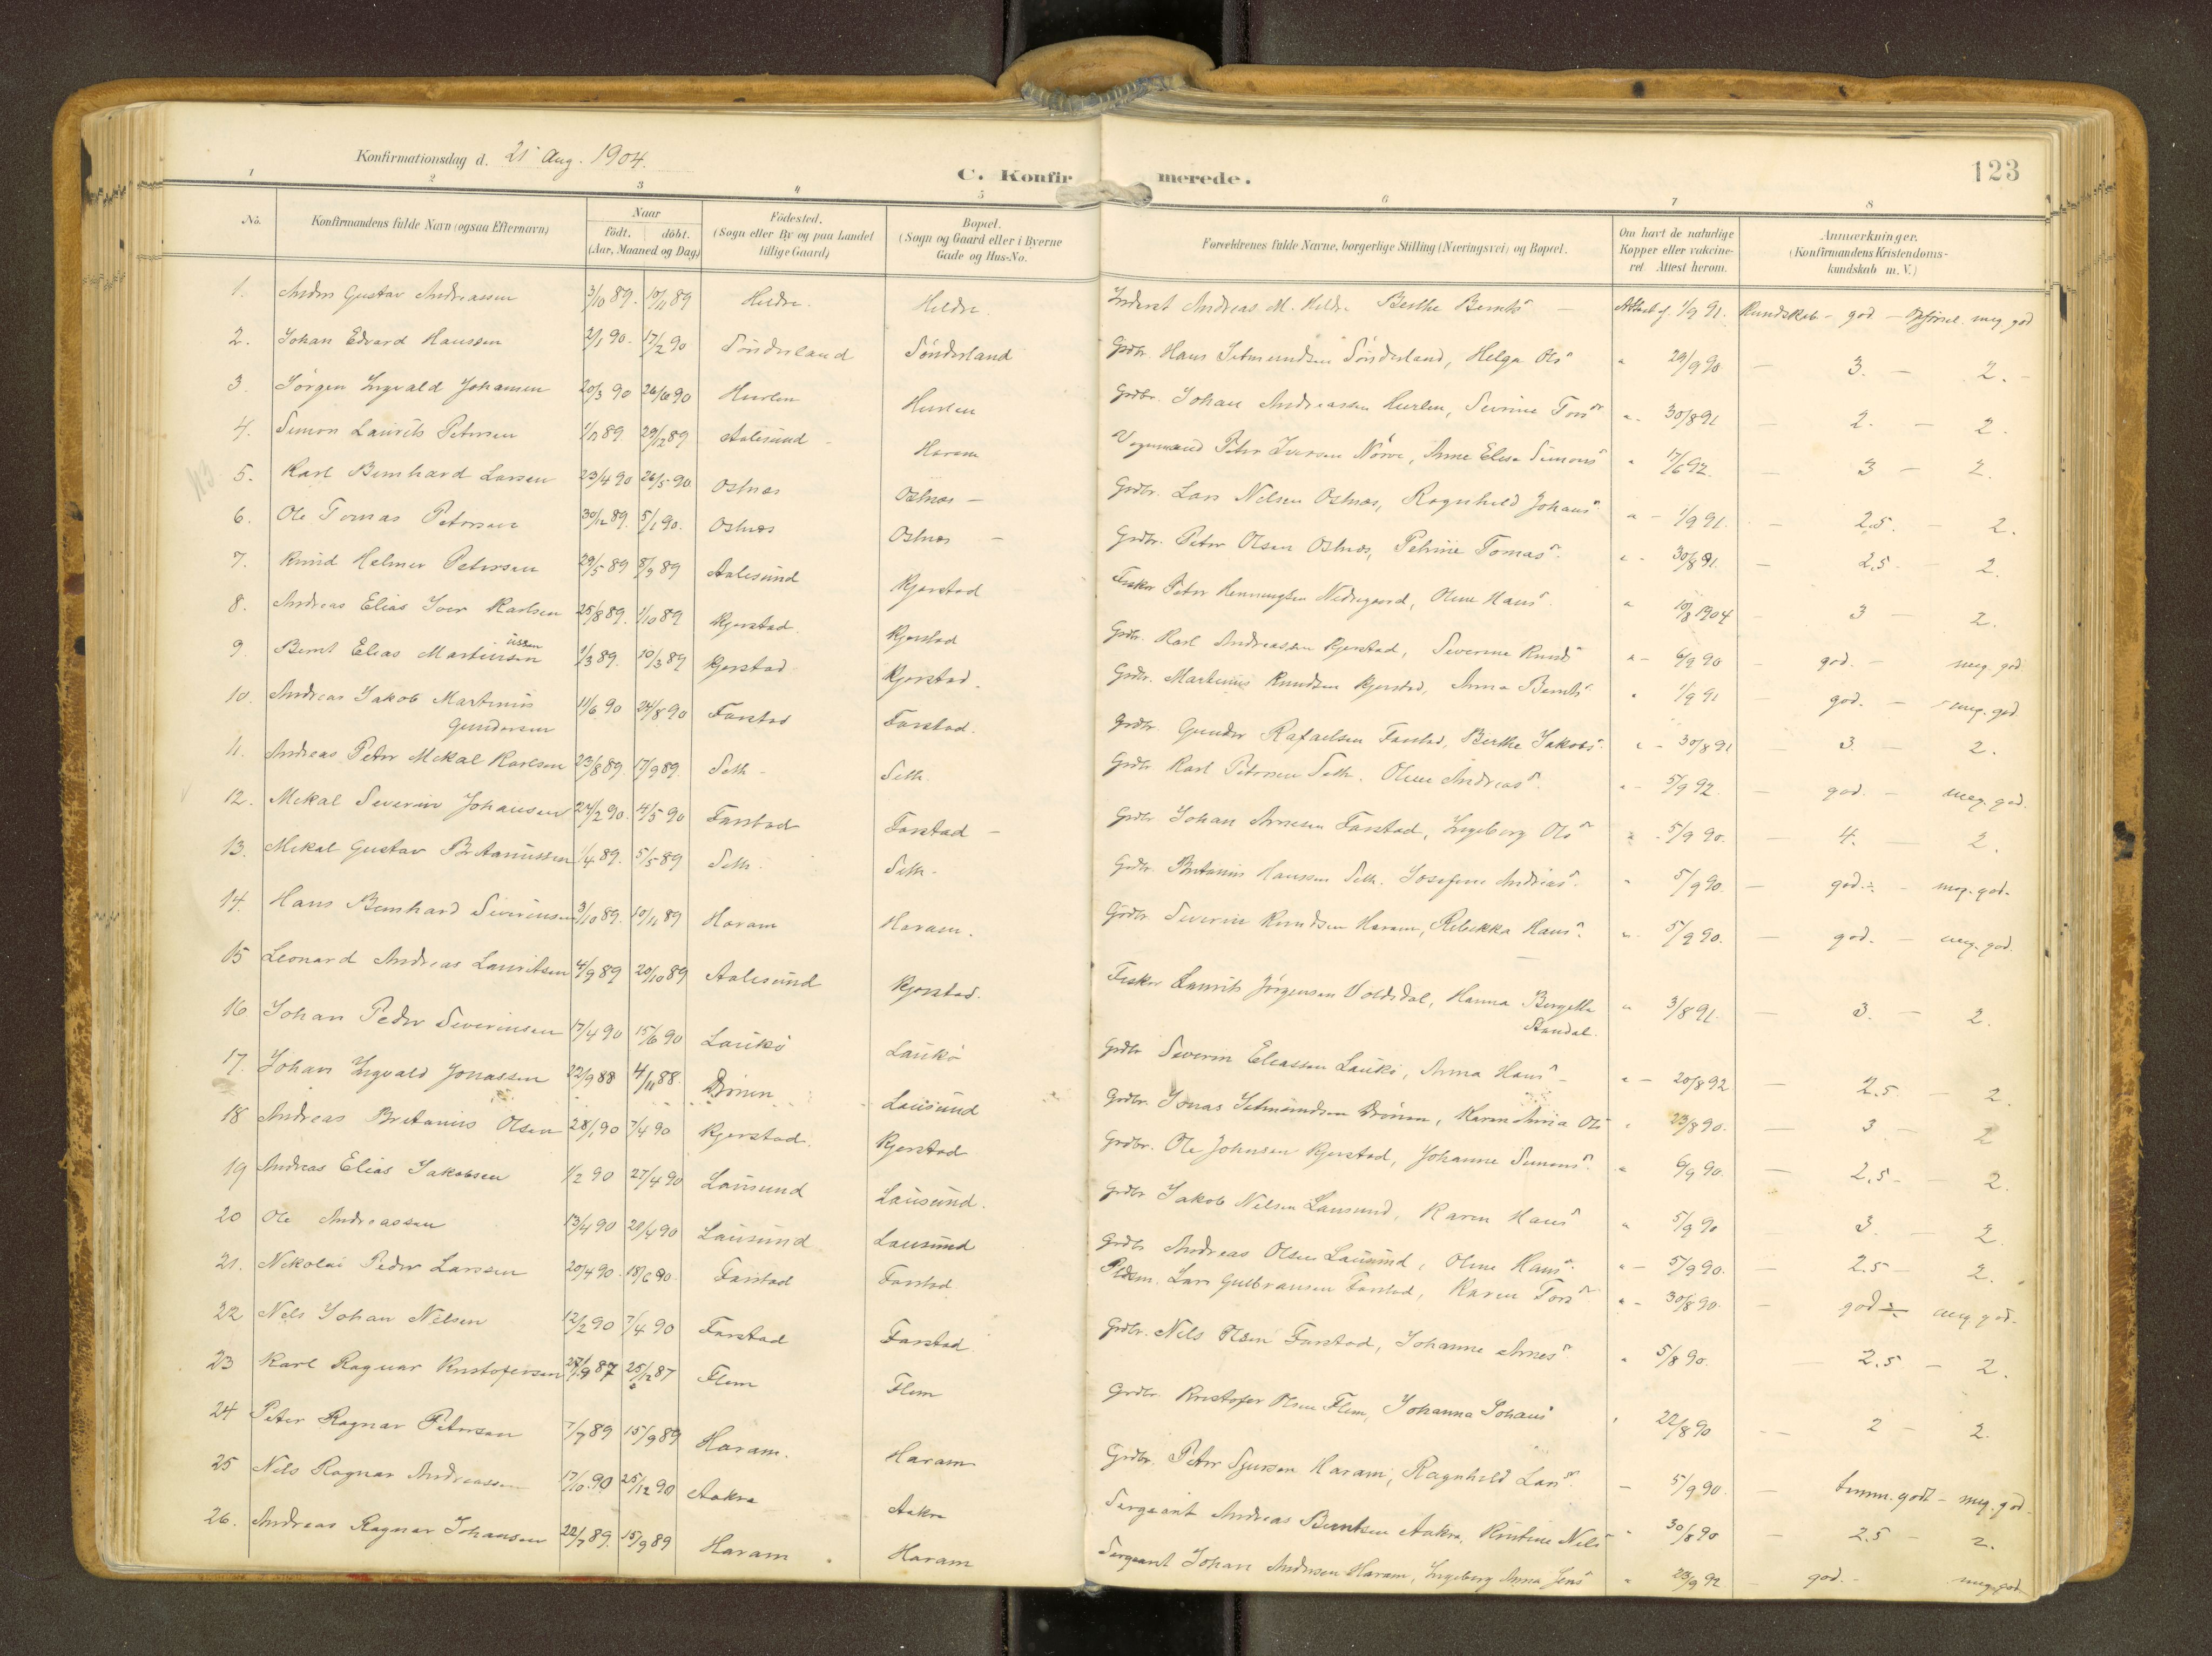 Konfirmationsdag d. 21 Aug. 1904.
C. Konfirmerede.
123
1 2 3 4 5 6 7 8
No.
Konfirmandens fulde Navn (ogsaa Efternavn)
Naar født. døbt. (Aar, Maaned og Dag)
Fødested. (Sogn eller By og paa Landet tillige Gaard)
Bopæl. (Sogn og Gaard eller i Byerne Gade og Hus-No.
Forældrenes fulde Navne, borgerlige Stilling (Næringsvei) og Bopæl.
Om havt de naturlige Kopper eller vakcineret. Attest herom.
Anmærkninger. (Konfirmandens Kristendomskundskab m. V.)
1. Anders Gustav Andreassen 3/10 89. 10/11 89 Hildre. Hildre. Andreas M. Hildre Berthe Bernts Attest af 1/9 91. Kundskab - god - Opførsel. meg. god
2. Johan Edvard Hanssen 2/1 90. 17/2 90 Sønderland Sønderland Grdbr. Hans Setmundsen Sønderland, Helga Ols " 29/9 90 - 3. - 2. -
3. Jørgen Ingvald Johansen 20/3 90 26/6 90 Hurlen Hurlen Grdbr. Johan Andreassen Hurlen, Severine Tors " - 30/8 91 - 2. - 2.
4. Simon Laurits Petersen 29/12 89 Aalesund - Haram Vognmand Peter Iversen Nørve, Anne Elise Simons " 17/6 92. - 3 - 2.
5. Karl Bernhard Larsen 23/4 90 26/5 90 Ostnæs Ostnæs - Grdbr. Lars Nilsen Ostnæs, Ragnhild Johans " - 1/9 91. - 2.5. - 2.
6. Ole Tomas Petersen 30/12 89. 5/1 90. Ostnæs Ostnæs - Grdbr. Peter Olsen Ostnæs, Petrine Tomas " - 30/8 91. - 2.5 - 2.
7. Knud Helmer Petersen 29/5 89 8/9 89 Aalesund Kjerstad Fisker Peter Henningsen Nedregaard, Oline Hans " 10/8 1904 - 3 - 2.
8. Andreas Elias Iver Karlsen 25/8 89. 1/10 89 Kjerstad. Kjerstad Grdbr. Karl Andreassen Kjerstad, Severine Knuds " - 6/9 90 - god. - meg. god
9. Bernt Elias Martinsen ussen 1/3 89. 10/3 89 Kjerstad Kjerstad. Grdbr. Martinus Knudsen Kjerstad, Anna Bernts " 1/9 91 god. - meg. god.
10. Andreas Jakob Martinus
Gundersen 11/6 90 24/8 90 Farstad Farstad. Grdbr. Gunder Rafaelsen Farstad, Berthe Jakobs " - 30/8 91 - 3. - 2.
11. Andreas Peter Mikal Karlsen 23/8 89. 17/9 89. Seth - Seth. Grdbr. Karl Petersen Seth. Oline Andreas " - 5/9 92. - god. - meg. god.
12. Mikal Severin Johansen 24/2 90. 4/5 90 Farstad Farstad - Grdbr. Johan Arnesen Farstad, Ingeborg Ols " 5/9 90. - 4. - 2.
13. Mikal Gustav Britanussen 1/4 89. 5/5 89 Seth. Seth - Grdbr. Britanus Hanssen Seth. Josefine Andreas " 5/9 90. - god ÷ - meg. god.
14. Hans Bernhard Severinsen 3/10 89. 10/11 89 Haram Haram. Grdbr. Severin Knudsen Haram, Rebekka Hans " 5/9 90. - god. - meg. god.
15 Leonard Andreas Lauritsen 4/9 89 20/10 89 Aalesund Kjerstad. Fisker Laurits Jørgensen Voldsdal, Hanna Bergitte
Standal. " 3/8 91. - 3. - 2.
16 Johan Peder Severinsen 17/4 90 15/6 90 Laukö Laukö Grdbr Severin Eliassen Laukö, Anna Hans " - 20/8 92 - 2.5 - 2.
17. Johan Ingvald Jonassen 22/9 88 4/11 88. Drönen Lausund Grdbr. Jonas Setmundsen Drönen, Karen Anna Ols " 23/8 90. - 3 - 2
18 Andreas Britanius Olsen 28/1 90 7/4 90 Kjerstad. Kjerstad Grdbr. Ole Johnsen Kjerstad, Johanne Simons " 6/9 90. - 2.5 - - 2.
19 Andreas Elias Jakobsen 1/2 90 27/4 90 Lausund Lausund. Grdbr Jakob Nilsen Lausund, Karen Hans " 5/9 90 - 3. - 2.
20 Ole Andreassen 13/4 90 28/4 90 Lausund Lausund Grdbr Andreas Olsen Lausund, Oline Hans " - 5/9 90. - 2.5 - 2.
21. Nikolai Peder Larssen 20/4 90. 18/6 90. Farstad Farstad. Pldsm. Lars Gulbransen Farstad, Karen Tors " - 30/8 90. - god ÷ meg. god.
22 Nils Johan Nilsen 12/2 90 7/4 90 Farstad Farstad. Grdbr. Nils Olsen Farstad, Johanne Arnes " 5/8 90. - 2.5 - 2.
23 Karl Ragnar Kristofersen 27/9 87 25/12 87 Flem Flem Grdbr. Kristofer Olsen Flem, Johanna Johans " 22/8 90 - 2 - 2.
24 Peter Ragnar Petersen 7/7 89 15/9 89 Haram. Haram Grdbr. Peter Sjursen Haram, Ragnhild Lars - 5/9 90. - temm. godt - meg. god.
25 Nils Ragnar Andreassen 17/10 90 25/12 90 Aakre Aakre Sergeant Andreas Berntsen Aakre, Kristine Nils " 30/8 90 - 2.5 - 2.
26. Andreas Ragnar Johansen 22/7 89. 15/9 89 Haram Haram Sergeant Johan Andersen Haram, Ingeborg Anna Jens " 23/9 92 - god. - meg. god.